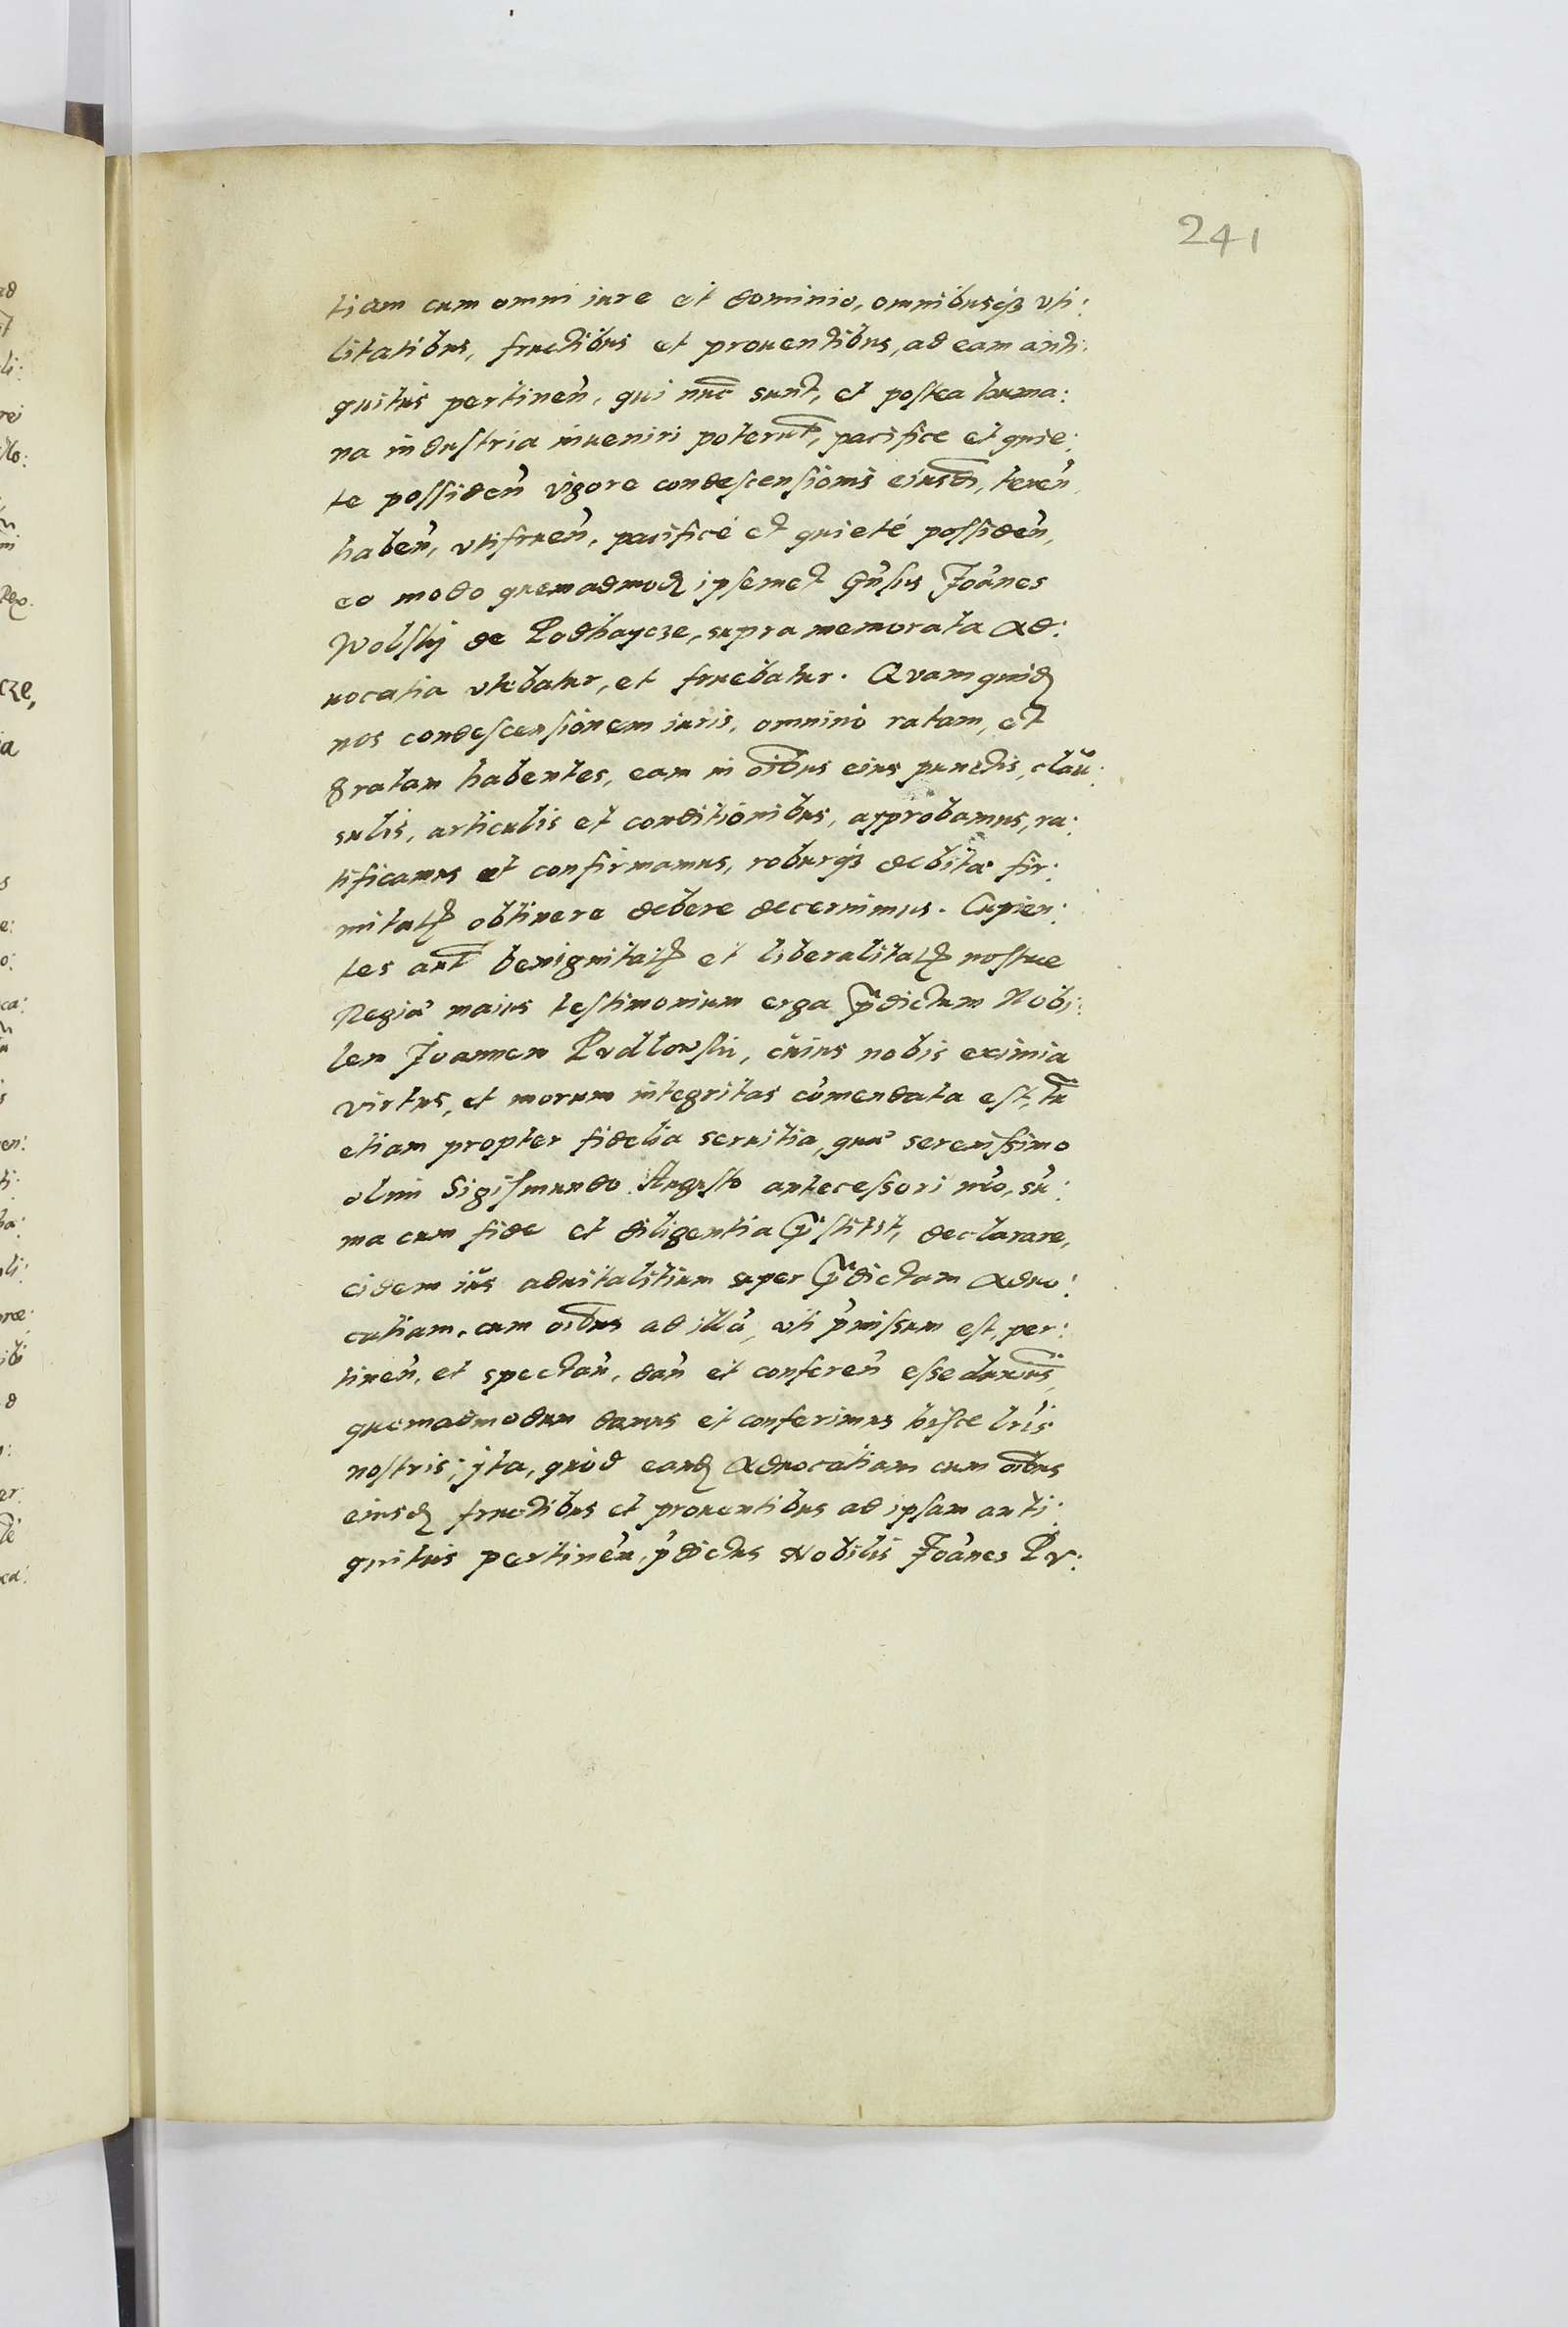 241
tiam cum omni iure et dominio, omnibusqꝫ vti:
litatibus, fructibus et prouentibus, ad eam anti:
quitus pertineñ, qui nuc̃ sunt, et postea huma:
na industria inueniri poterut̃, pacifice et quie:
te possideñ vigore condescensionis eiusd̃, teneñ,
habeñ, vtifrueñ, pacificé et quieté possideñ,
eo modo quemadmodꝫ ipsemet Gñsus Joãnes
Wolskj de Podhaycze, supra memorata Ad:
uocatia vtebatur, et fruebatur. Quam quidꝫ
nos condescensionem iuris, omnino ratam, et
gratam habentes, eam in oĩbus eius punctis, clau:
sulis, articulis et conditionibus, approbamus, ra:
tificamus et confirmamus, roburqꝫ debitæ fir:
mitatꝫ obtinere debere decernimus. Cupien:
tes aut̃ benignitatꝫ et liberalitatꝫ nostræ
Regiæ maius testimonium erga p̃dictum Nobi:
lem Joannem Pudlowski, cuius nobis eximia
virtus, et morum integritas cõmendata est, tũ
etiam propter fidelia seruitia, quæ serenissimo
olim Sigismundo Augusto antecessori nr̃o, sũ:
ma cum fide et diligentia p̃stitit, declarare,
eidem ius aduitalitium super p̃dictam Aduo:
catiam, cum oĩbus ad illã, vti p̃missum est, per:
tineñ, et spectañ, dañ et confereñ esse duximus̃,
quemadmodum damus et conferimus hisce lr̃is
nostris; jta, quod eandꝫ Aduocatiam cum oĩbus
eiusdꝫ fructibus et prouentibus ad ipsam anti:
quitus pertineñ, p̃dictus Nobilis Joãnes Pu: